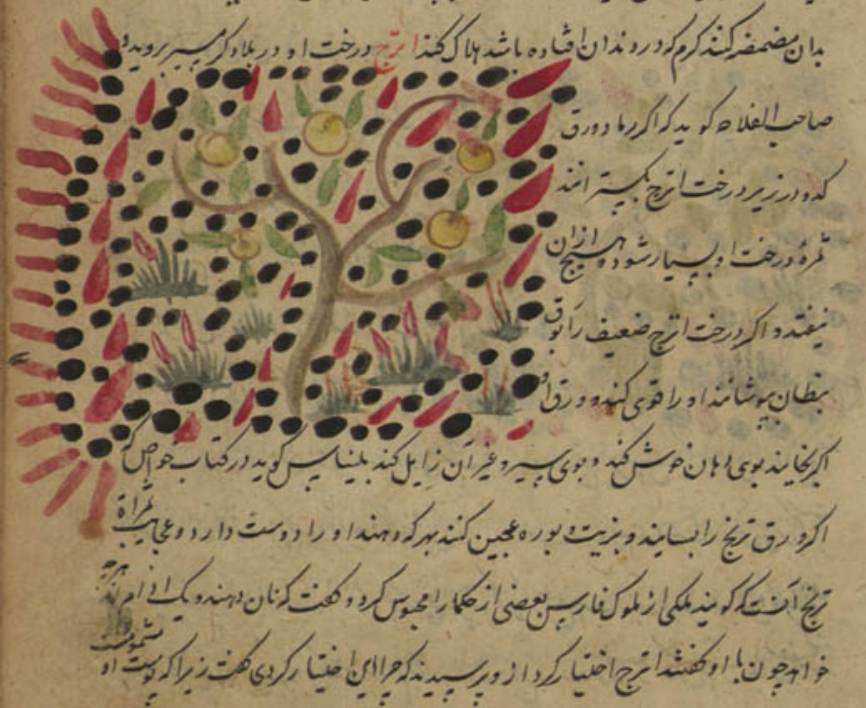 بدان مضمضه کنند کرم که در دندان افتاده باشد هلاک کند اترج درخت او در بلاد کرمسیر بروید و
صاحب الفلاحه کوید که اکر رماد ورق
کدو در زیر درخت اترج بکسترانند
ثمرهٔ درخت او بسیار شود و هیچ ازان
نیفتد و اکر درخت اترج ضعیف را بورق
بنطان بپوشانند او را قوی کند و ورق او
اکر بخایند بوی دهان خوش کند و بوی سیر و غیر آن زایل کند بلیناس کوید در کتاب خواص که
اکر ورق ترنج را بسایند و بزیت و بوره عجین کنند بهر که دهند او را دوست دارد و عجایب ثمرات
ترنج آنست که کویند ملکی از ملوک فارس بعضی از حکما را محبوس کرد و کفت که نان دهند و یک ادام هرچه
خواهد چون با او کفتند اترج اختیار کرد از و پرسیدند که چرا این اختیار کردی کفت زیرا که پوست او مشمومست